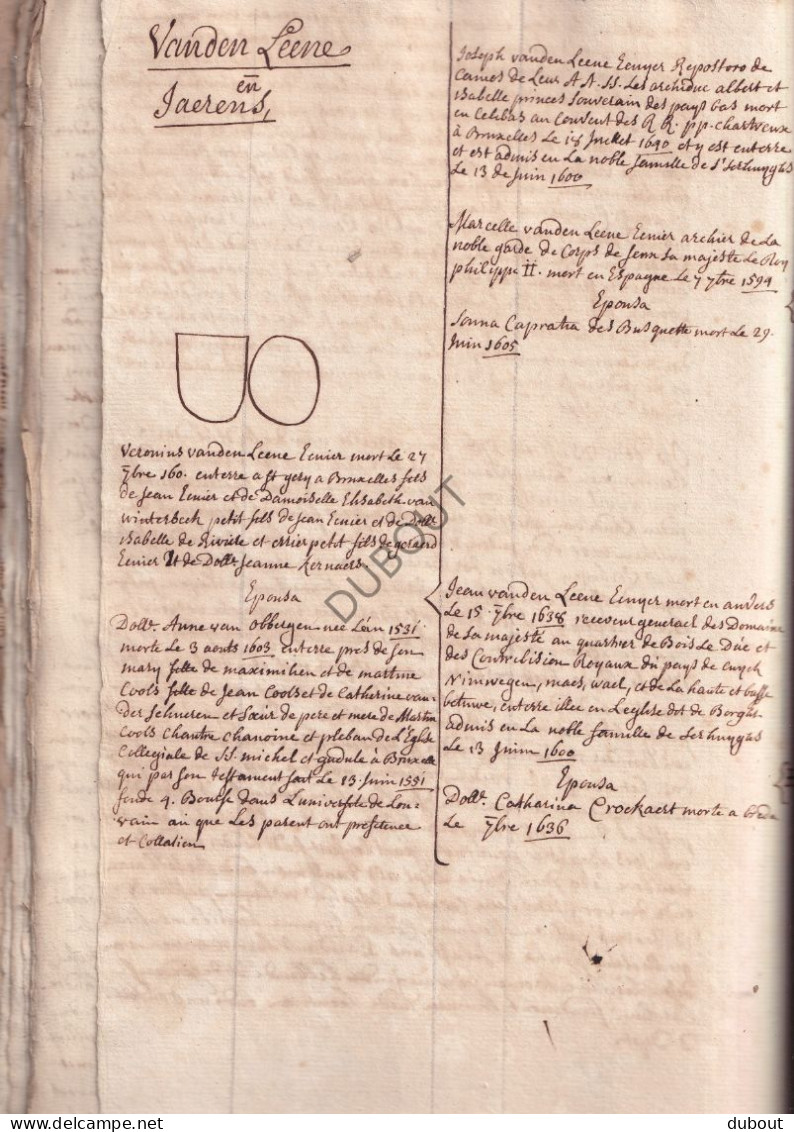 Vanden Leene
en
Jaerens,
Veronius vanden Leene Ecuier mort Le 27
7bre 160. enterre a St gery a Bruxelles fils
de Jean Ecuier et de Damoiselle Elisabeth van
winterbeck petit fils de Jean Ecuier et de Dolle.
isabelle de Riviere et errier petit fils de gerard
Ecuier et de Dolle Jeanne Kernaers.
Epousa
Dolle. Anne van Obbergen nee L'én 1531
morte Le 3 aouts 1603 enterre pres de son
mary fille de maximilien et de martine
Cools fille de Jean Cools et de Catherine van-
der Schueren et Sœur de pere et mere de Martin
Cools Chantre Chanoine et pleban de L'Eglise
Collegiale de SS. michel et gudule à Bruxelle
qui par son testament fait Le 13. Juin 1551
fonde 4. Bourse dans L'universite de Lou-
vain ai que Les parent ont
et Collation
Joseph vanden Leene Ecuyer Repostoro de
Cames de Leur AA. SS. Les archiduc albert et
isabelle princes Souverain des pays bas mort
en Celibas au Couvent des RR. pp. chartreux
à Bruxelles Le 18 Juillet 1640 et y est enterre
et est admis en La noble famille de S'erhuyghs
Le 13 de Juin 1600
Marcelle vanden Leene Ecuier archier de La
noble garde de Corps de Sa majeste Le Roy
philippe II. mort en Espagne Le 7 7bre 1594
Epousa
Capratra des Busquette mort Le 29.
Juin 1605
Jean vanden Leene Ecuyer mort en anvers
Le 15. 7bre 1638 receveur generael des Domaine
de sa majesté au quartier de Bois Le Duc et
des Contribision Royaux du pays de cuyck
Nimwegen, maes, wael, et de La haute et basse
betuwe, enterre illec en L'eglise dit de Borght
admis en La noble famille de Serhuyghs
Le 13 Juin 1600
Epousa
Dolle. Catharina Crockaert morte a breda
Le 7bre 1636
DUBOUT
dubout
delcampe.net